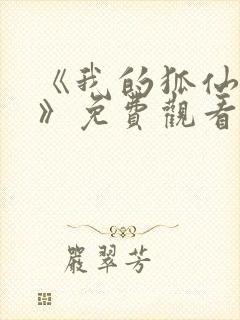 《我的狐仙
》免費觀看
嚴翠芳